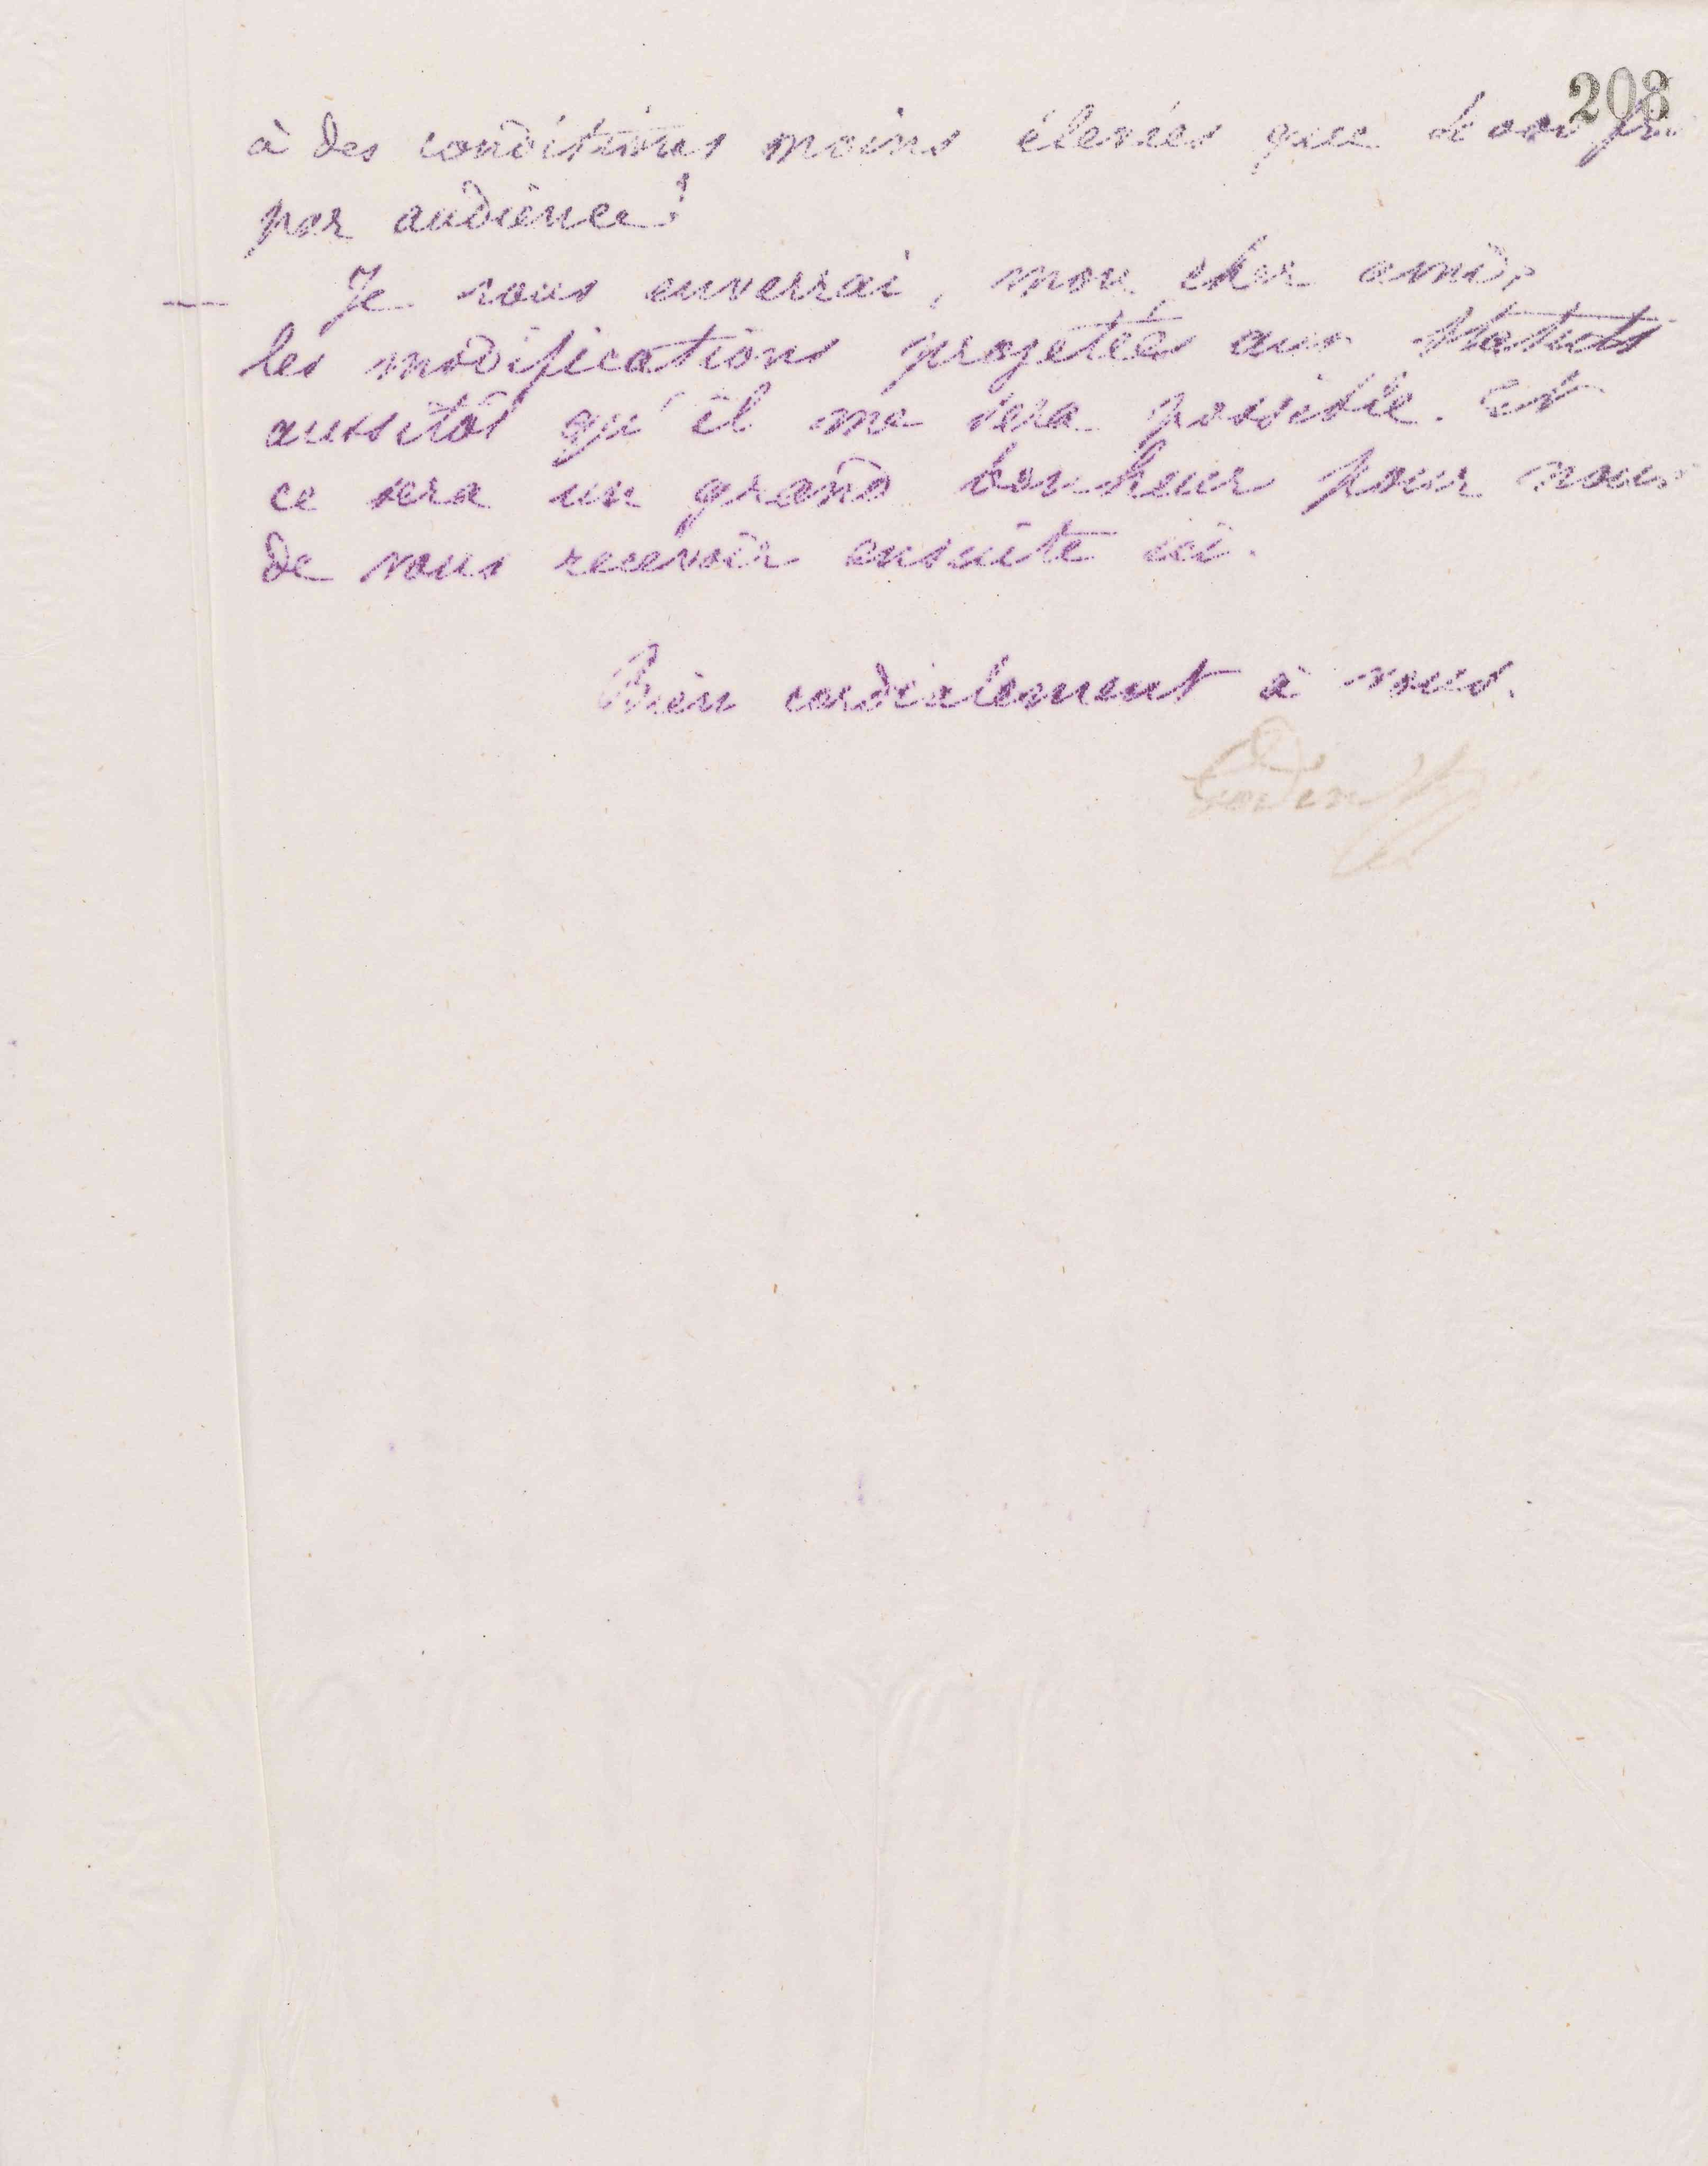 208
à des conditions moins élevées que
par audience!
— Je vous enverrai, mon cher ami,
les modifications projetées aux Statuts
aussitôt qu'il me sera possible. Et
ce sera un grand bonheur pour nous
de vous recevoir ensuite ici.
Bien cordialement à vous.
Godin